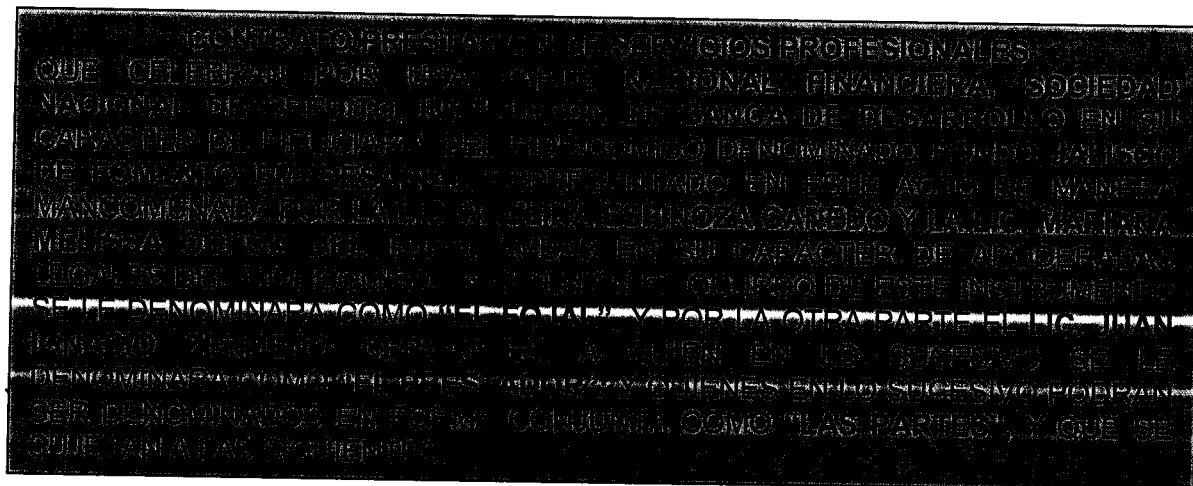 CONTRATO PRESTACION DE SERVICIOS PROFESIONALES
QUE CELEBRAN POR UNA PARTE NACIONAL FINANCIERA, SOCIEDAD
NACIONAL DE CREDITO, INSTITUCION DE BANCA DE DESARROLLO EN SU
CARACTER DE FIDUCIARIA DEL FIDEICOMISO DENOMINADO FONDO JALISCO
DE FOMENTO EMPRESARIAL, REPRESENTADO EN ESTE ACTO DE MANERA
MANCOMUNADA POR LA LIC. ESPINOZA CAÑEDO Y LA LIC. MARIANA
MELISSA EN SU CARACTER DE APODERADAS
LEGALES DEL FIDEICOMISO, DE ESTE INSTRUMENTO
SE LE DENOMINARA COMO "EL FOJAL" Y POR LA OTRA PARTE EL LIC. JUAN
IGNACIO A QUIEN EN LO SUCESIVO SE LE
DENOMINARA COMO "EL PRESTADOR" Y QUIENES EN LO SUCESIVO PODRAN
SER DENOMINADOS EN FORMA CONJUNTA COMO "LAS PARTES", Y QUE SE
SUJETAN A LAS SIGUIENTES